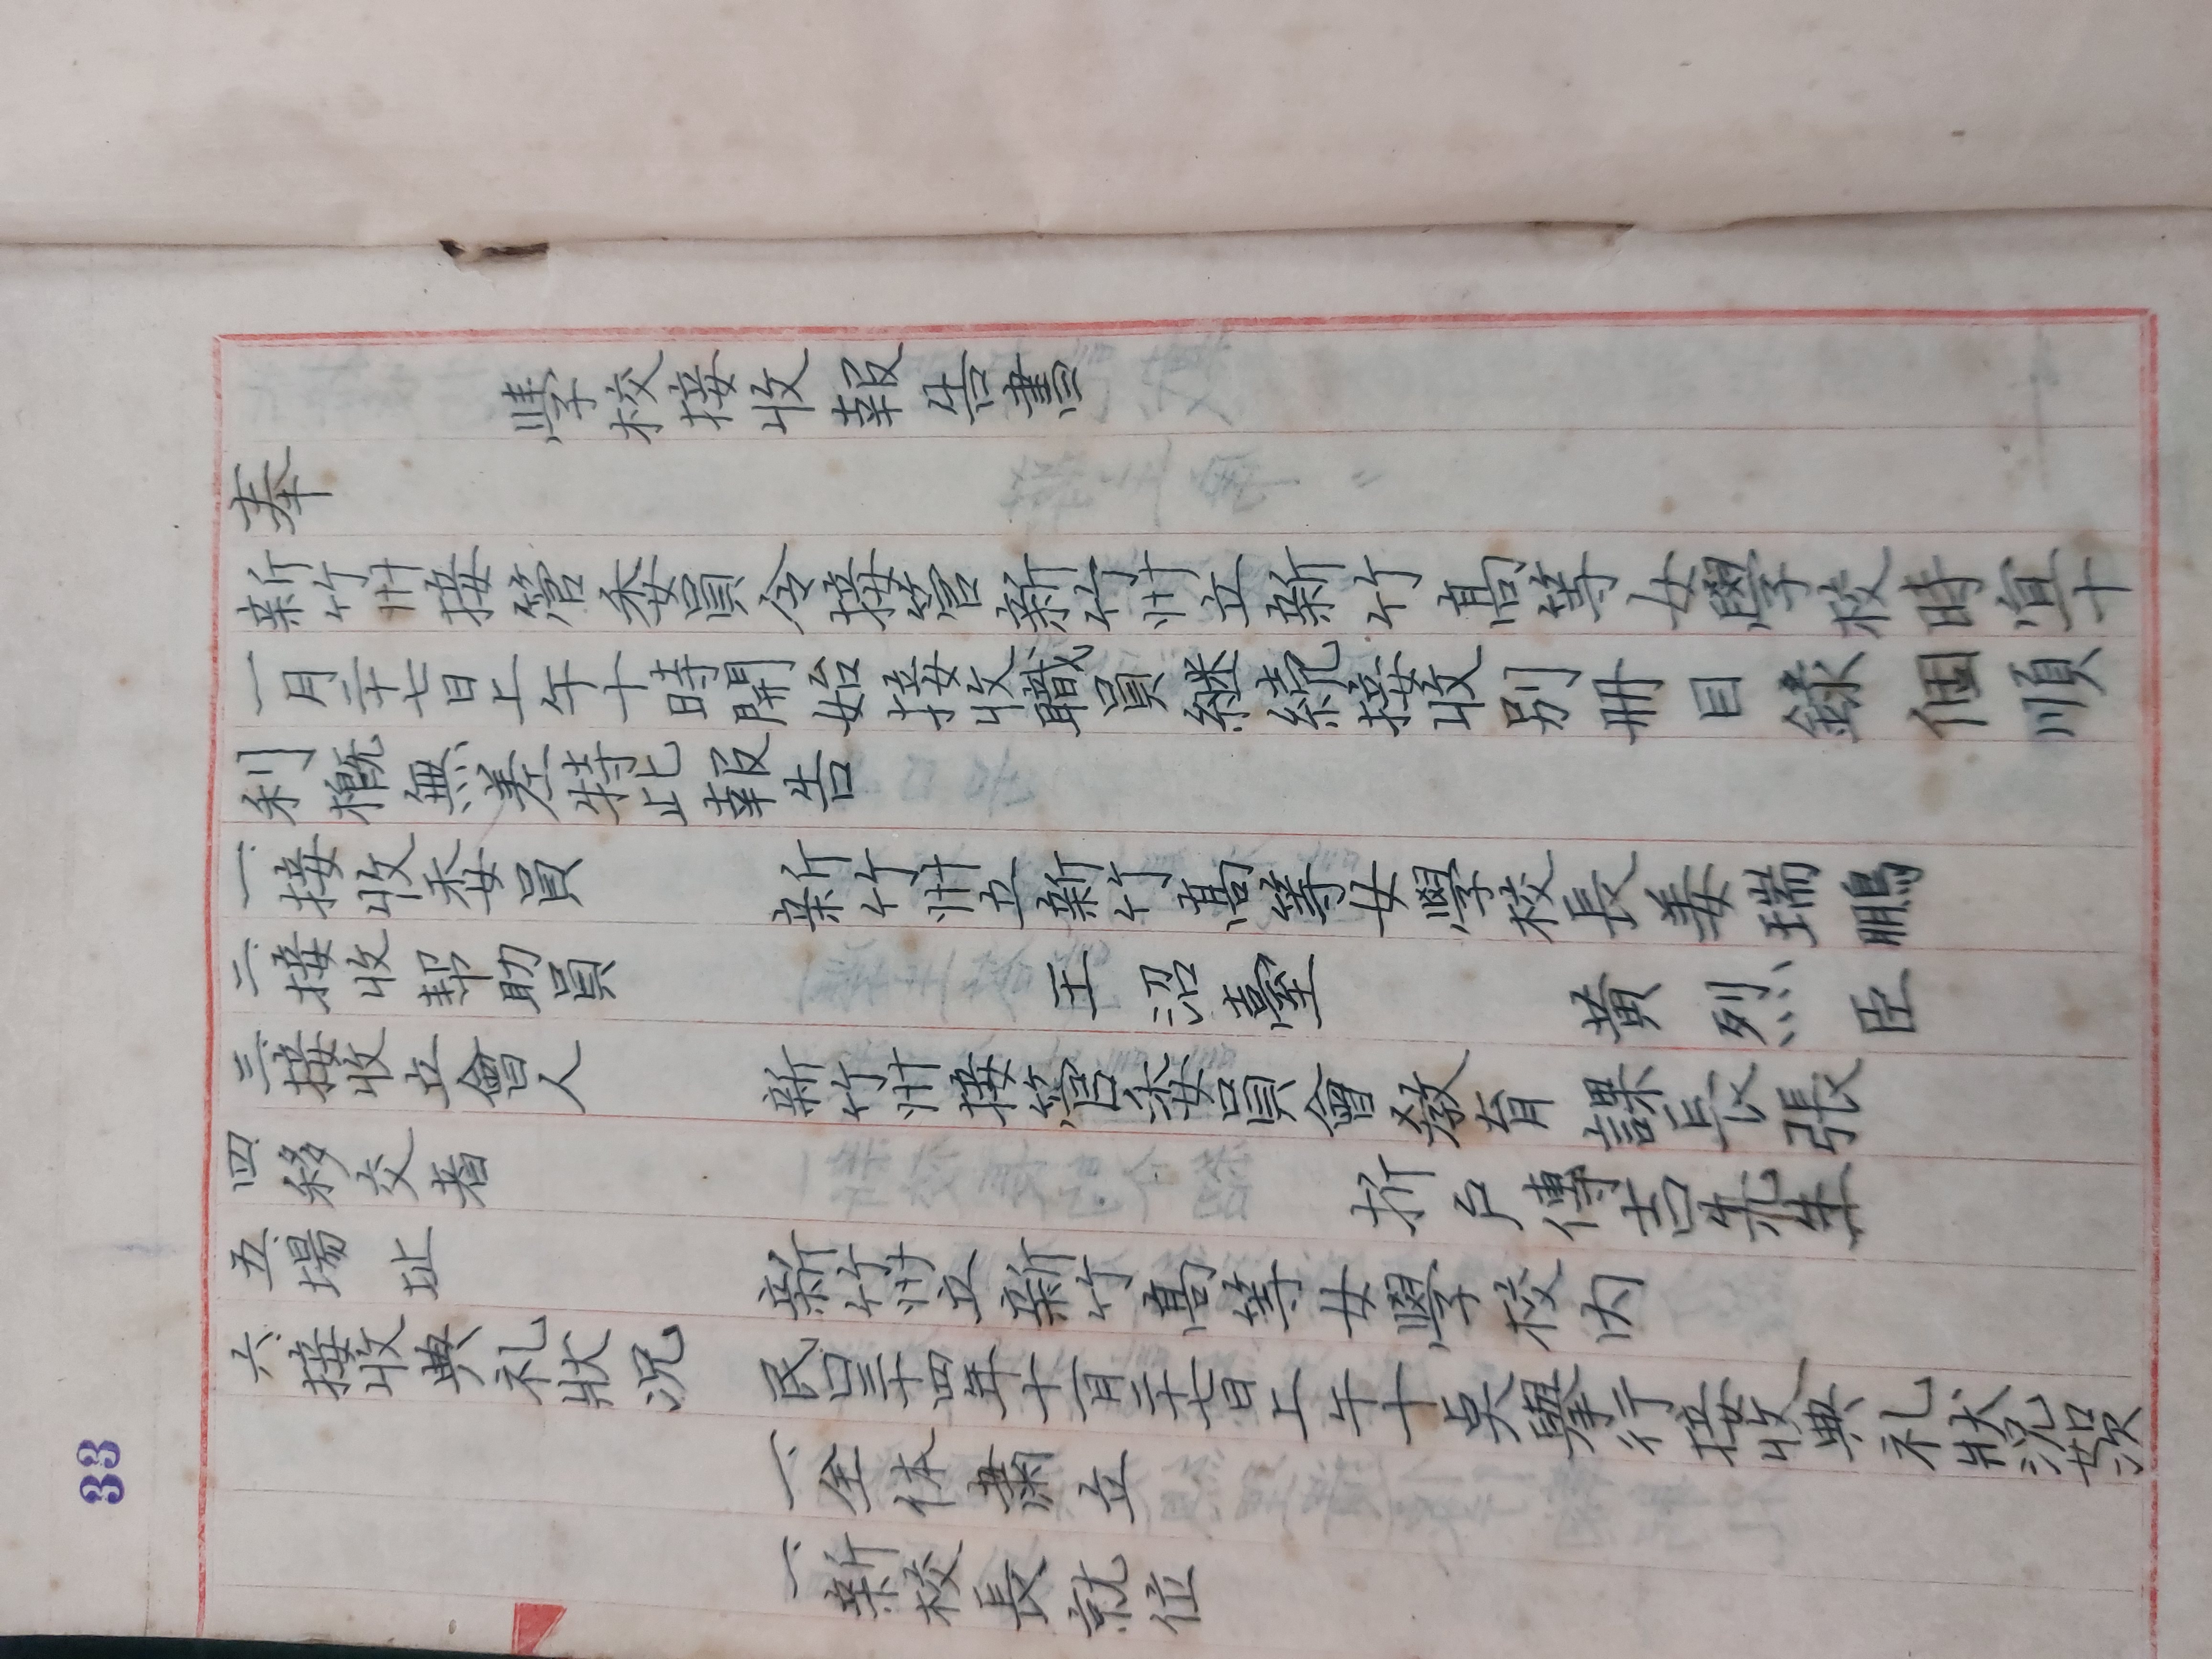 學校接收報告書
奉
新竹州接管委員令接管新竹州立新竹高等女學校時值十
一月二十七日上午十時開始接收職員繼續接收別冊目錄個順
利概無差特此報告
一、接收委員　新竹州立新竹高等女學校長姜瑞鵬
二、接收幇助員　王沼臺　黃烈臣
三、接收立會人　新竹州接管委員會敎育課長張
四、移交者　折戶傳吉先生
五、場址　新竹州立新竹高等女學校內
六、接收典礼狀況　民囗三十四年十一月二十七日上午十点舉行接收典礼狀況如次
一、全体肅立
一、新校長就位
33